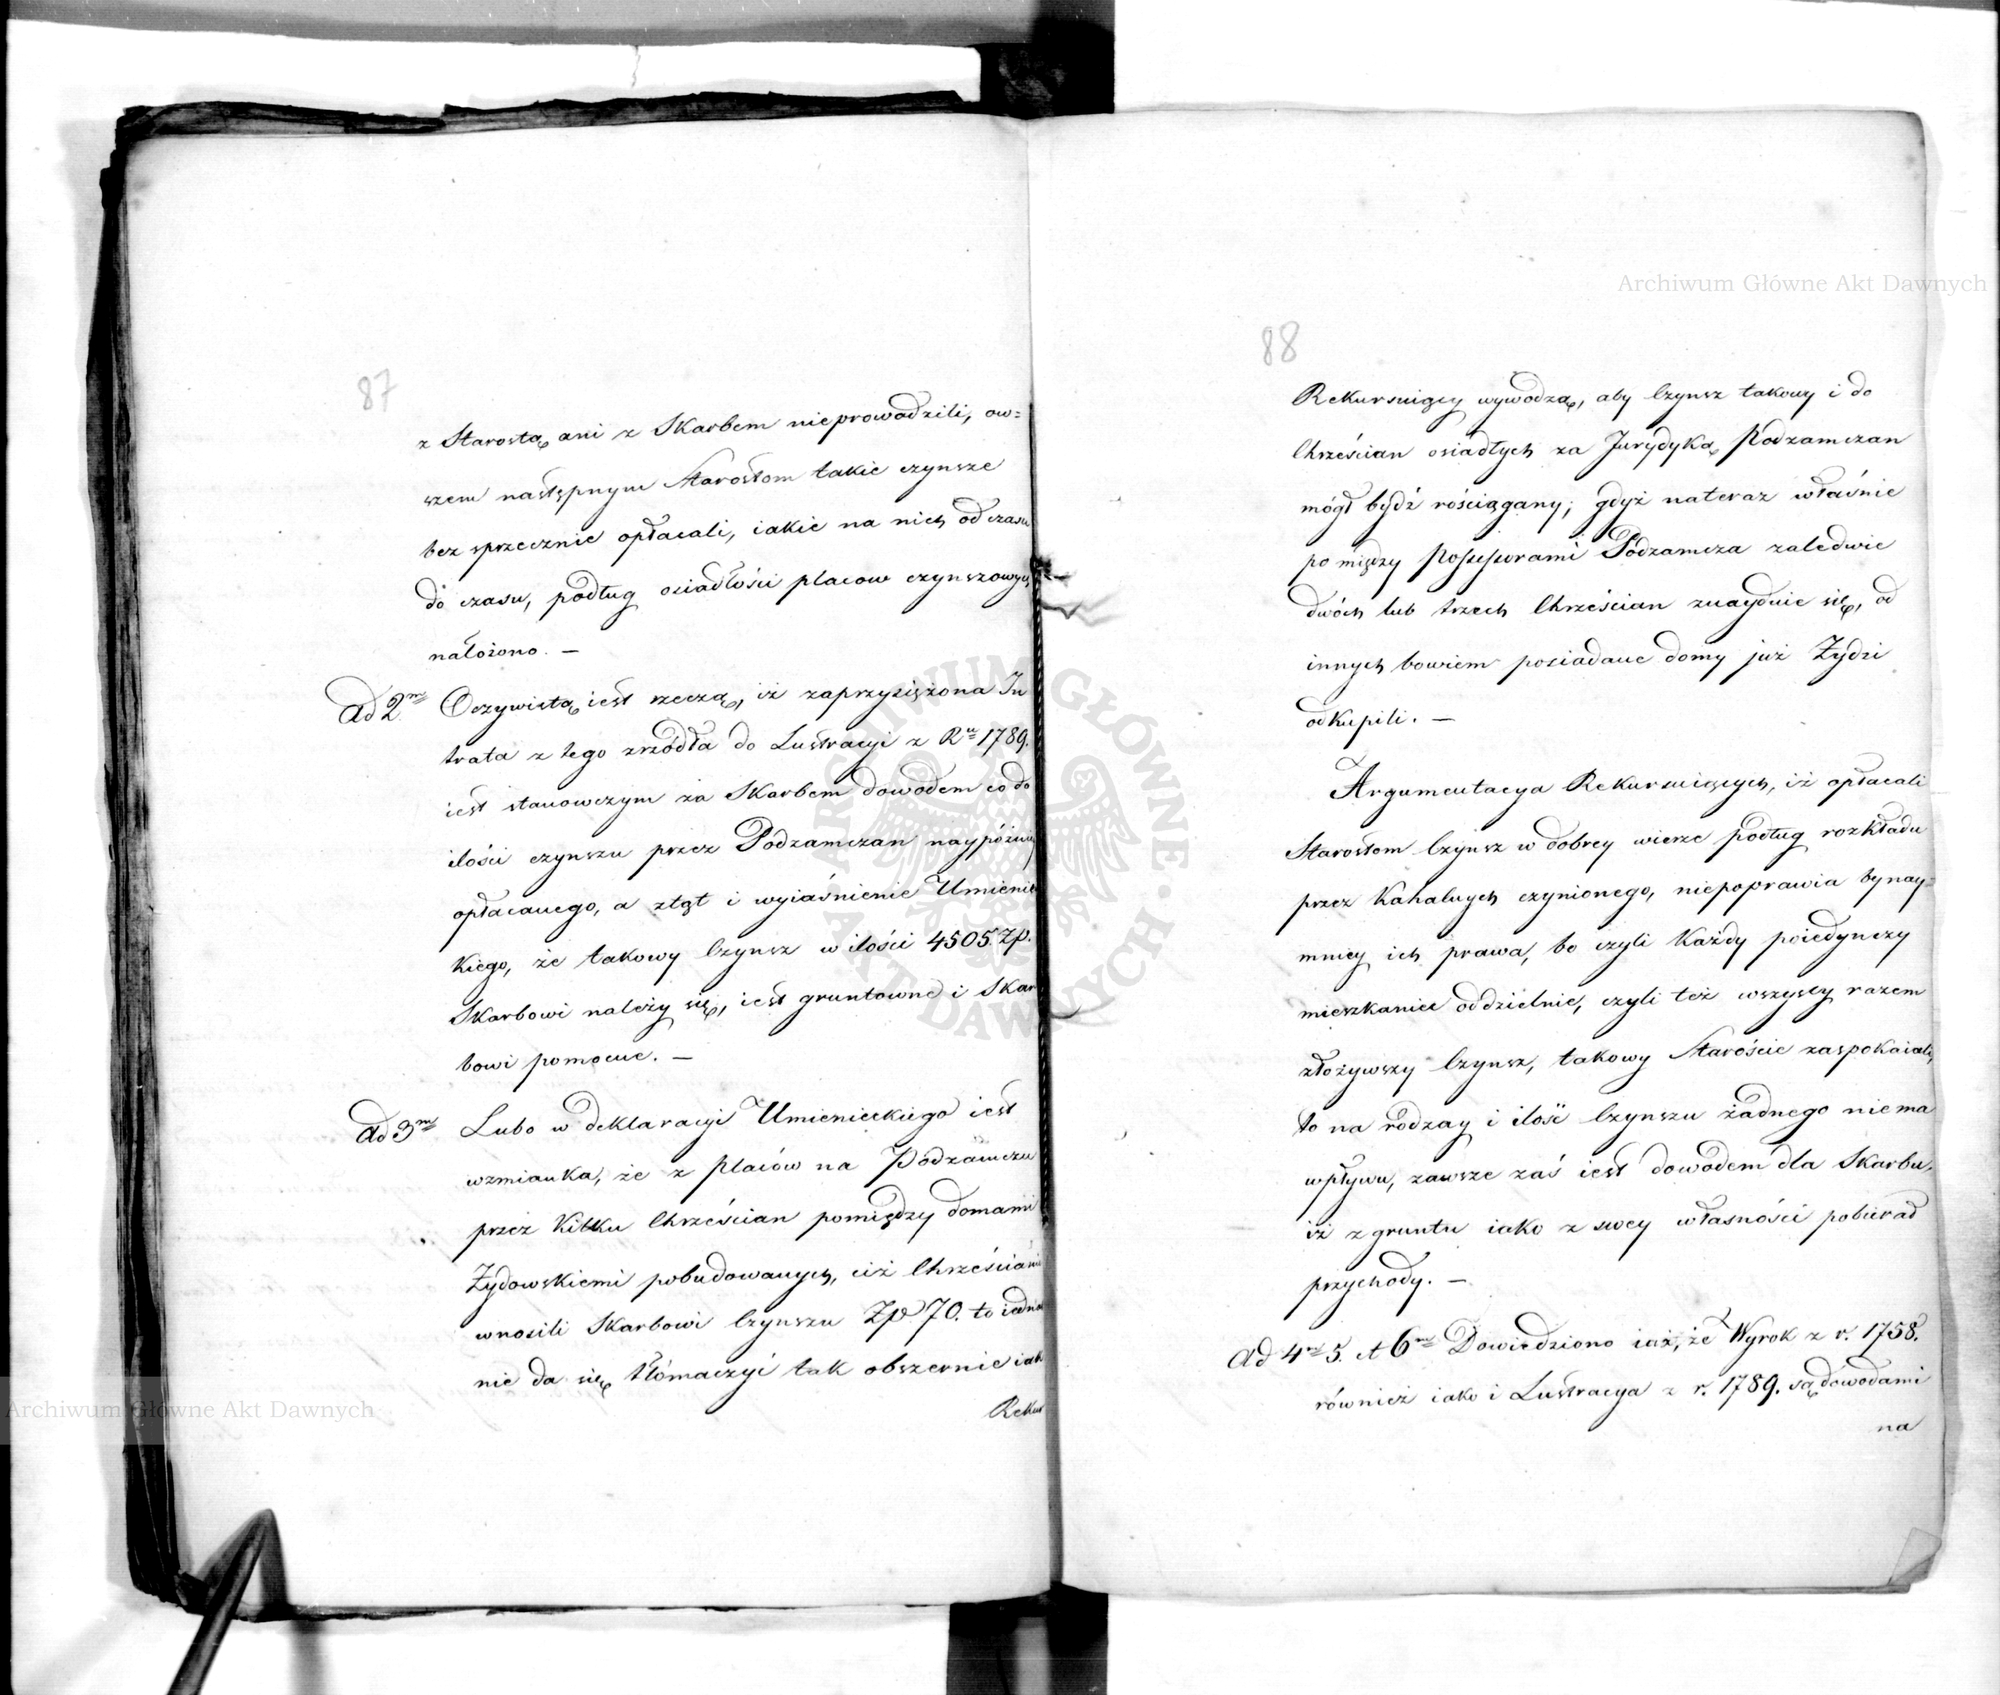 87
z Starostą ani z Skarbem nieprowadzili, ow=
szem następnym Starostom takie czynsze
bez sprzecznie opłacali, iakie na nich od czasu
do czasu, podług osiadłości placow czynszowych
nałożono. —
Ad 2m Oczywistą iest rzeczą, iż zaprzysiężona In
trata z tego zrzódła do Lustracyi z Ru 1789.
iest stanowczym za Skarbem dowodem co do
ilości czynszu przez Podzamczan naypóźniey
opłacanego, a ztąt i wyiaśnienie Umienie
kiego, że takowy Czynsz w ilości 4505 Zp.
Skarbowi należy się, iest gruntowne i Skar
bowi pomocne. —
Ad 3m Lubo w deklaracyi Umienieckiego iest
wzmianka, że z placów na Podzamczu
przez kilku Chrześcian pomiędzy domami
Żydowskiemi pobudowanych, ciż Chrześcianie
wnosili Skarbowi Czynszu Zp 70. to iednak
nie da się tłómaczyć tak obszernie iak
Rekur
88
Rekursuiący wywodzą, aby Czynsz takowy i do
Chrześcian osiadłych za Jurydyką Podzamczan
mógł bydź rościągany; gdyż nateraz właśnie
pomiędzy Possessorami Podzamcza zaledwie
dwóch lub trzech Chrześcian znayduie się, od
innych bowiem posiadane domy już Żydzi
odkupili. —
Argumentacya Rekursuiących, iż opłacali
Starostom Czynsz w dobrey wierze podług rozkładu
przez Kahalnych czynionego, niepoprawia bynay=
mniey ich prawa, bo czyli każdy poiedynczy
mieszkaniec oddzielnie, czyli też wszyscy razem
złożywszy Czynsz, takowy Staroście zaspokaiali,
to na rodzay i ilość Czynszu żadnego niema
wpływu, zawsze zaś iest dowodem dla Skarbu,
iż z gruntu iako z swey własności pobierał
przychody. —
Ad 4m 5. et 6m Dowiedziono iaż, że Wyrok z r. 1758.
również iako i Lustracya z r. 1789. są dowodami
na
Archiwum Główne Akt Dawnych
Archiwum Główne Akt Dawnych
ARCHIWUM GŁÓWNE AKT DAWNYCH